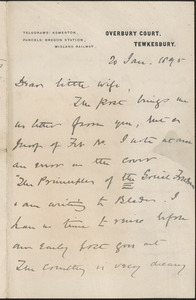 TELEGRAMS: KEMERTON.
PARCELS: BREDON STATION,
MIDLAND RAILWAY.
OVERBURY COURT,
TEWKESBURY.
20 Jan. 1895
Dear little wife,
The post brings me
no letter from you, but a
proof of I note
an error on the cover
"The Principles of the Social
I am writing to
has no time to revise before
our early post goes out
The country is very dreary